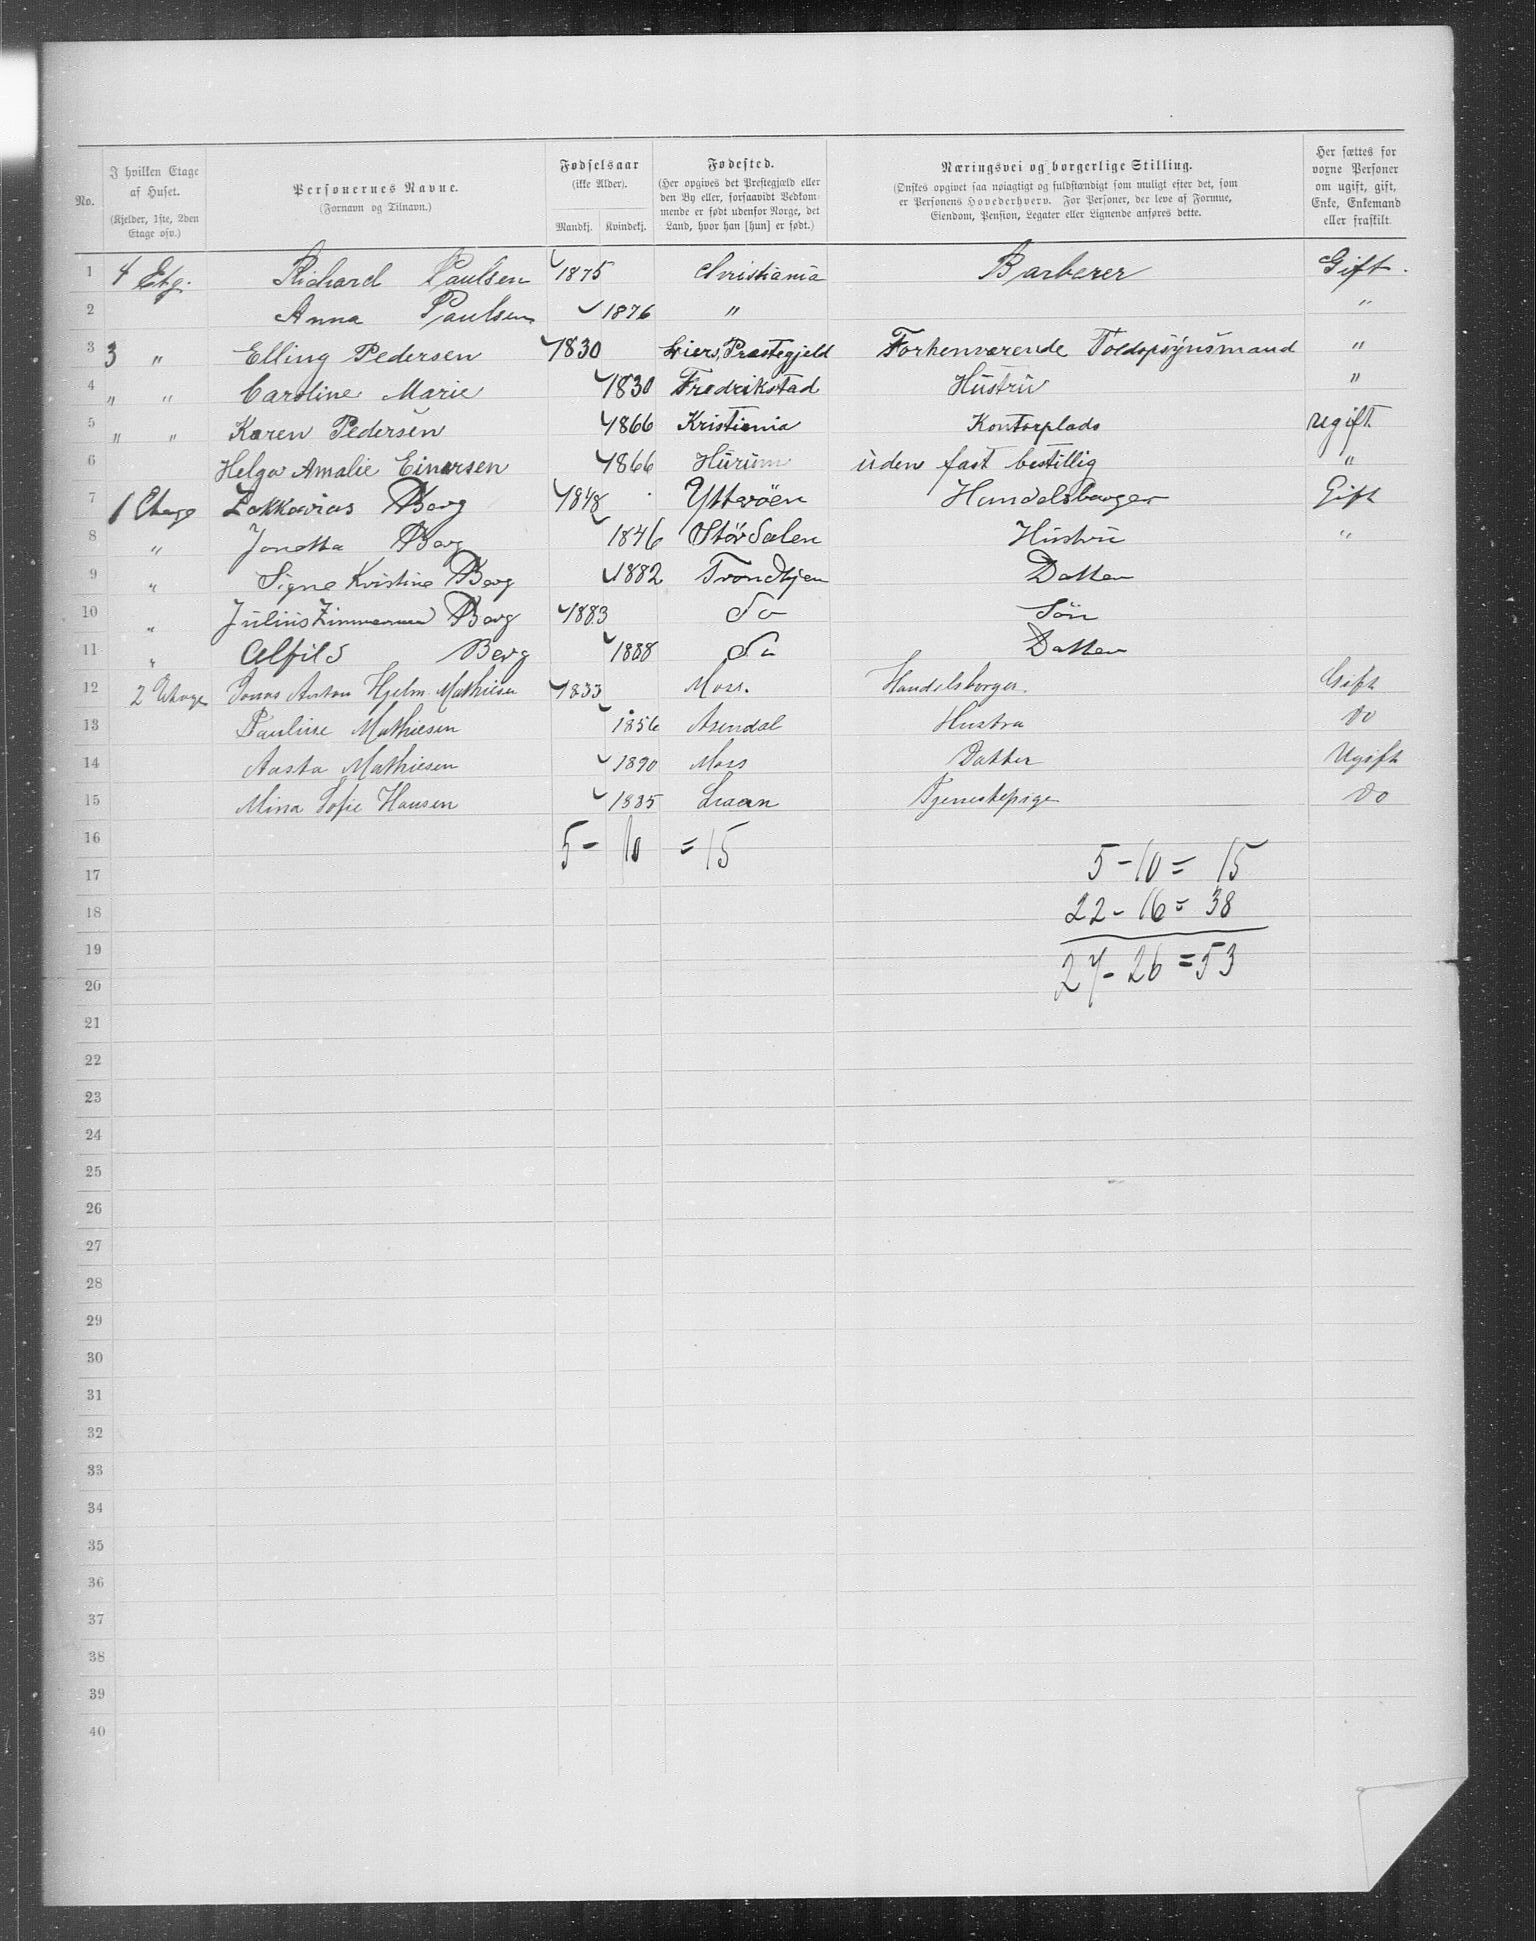 No.
I hvilken Etage af Huset.
(Kjelder, 1ste, 2den Etage osv.)
Personernes Navne.
(Fornavn og Tilnavn.)
Fødselsaar
(ikke Alder).
Mandkj. Kvindekj.
Fødested.
(Her opgives det Prestegjæld eller den By eller, forsaavidt Vedkommende er født udenfor Norge, det Land, hvor han [hun] er født.)
Næringsvei og borgerlige Stilling.
(Ønskes opgivet saa nøiagtigt og fuldstændigt som muligt efter det, som er Personens Hovederhverv. For Personer, der leve af Formue, Eiendom, Pension, Legater eller Lignende anføres dette.
Her sættes for voxne Personer om ugift, gift, Enke, Enkemand eller fraskilt.
1 4 Etg. Richard Paulsen 1875 Christiania Barberer Gift.
2 Anna Paulsen 1876 " "
3 3 " Elling Pedersen 1830 Liers, Præstegjeld Forhenværende Toldopsynsmand "
4 " " Caroline Marie 1830 Fredrikstad Hustru "
5 " " Karen Pedersen 1866 Kristiania Kontorplads ugift
6 Helga Amalie Einersen 1866 Hurum uden fast bestillig "
7 1 Etage Zakkarias Berg 1848 Ytterøen Handelsborger Gift
8 " Jonetta Berg 1846 Størdalen Hustru "
9 " Signe Kristine Berg 1882 Trondhjem Datter
10 " Julius Zimmerman Berg 1883 Do Søn
11 " Alfild Berg 1888 Do Datter
12 2 Etage Jonas Anton Hjelm Mathiesen 1833 Moss. Handelsborger. Gift
13 Pauline Mathiesen 1856 Arendal Hustru Do
14 Aasta Mathiesen 1890 Moss Datter Ugift
15 Mina Sofie Hansen 1885 Tjenestepige Do
16 5 - 10 = 15
17 5 - 10 = 15
18 22 - 16 = 38
19 27 - 26 = 53
20
21
22
23
24
25
26
27
28
29
30
31
32
33
34
35
36
37
38
39
40